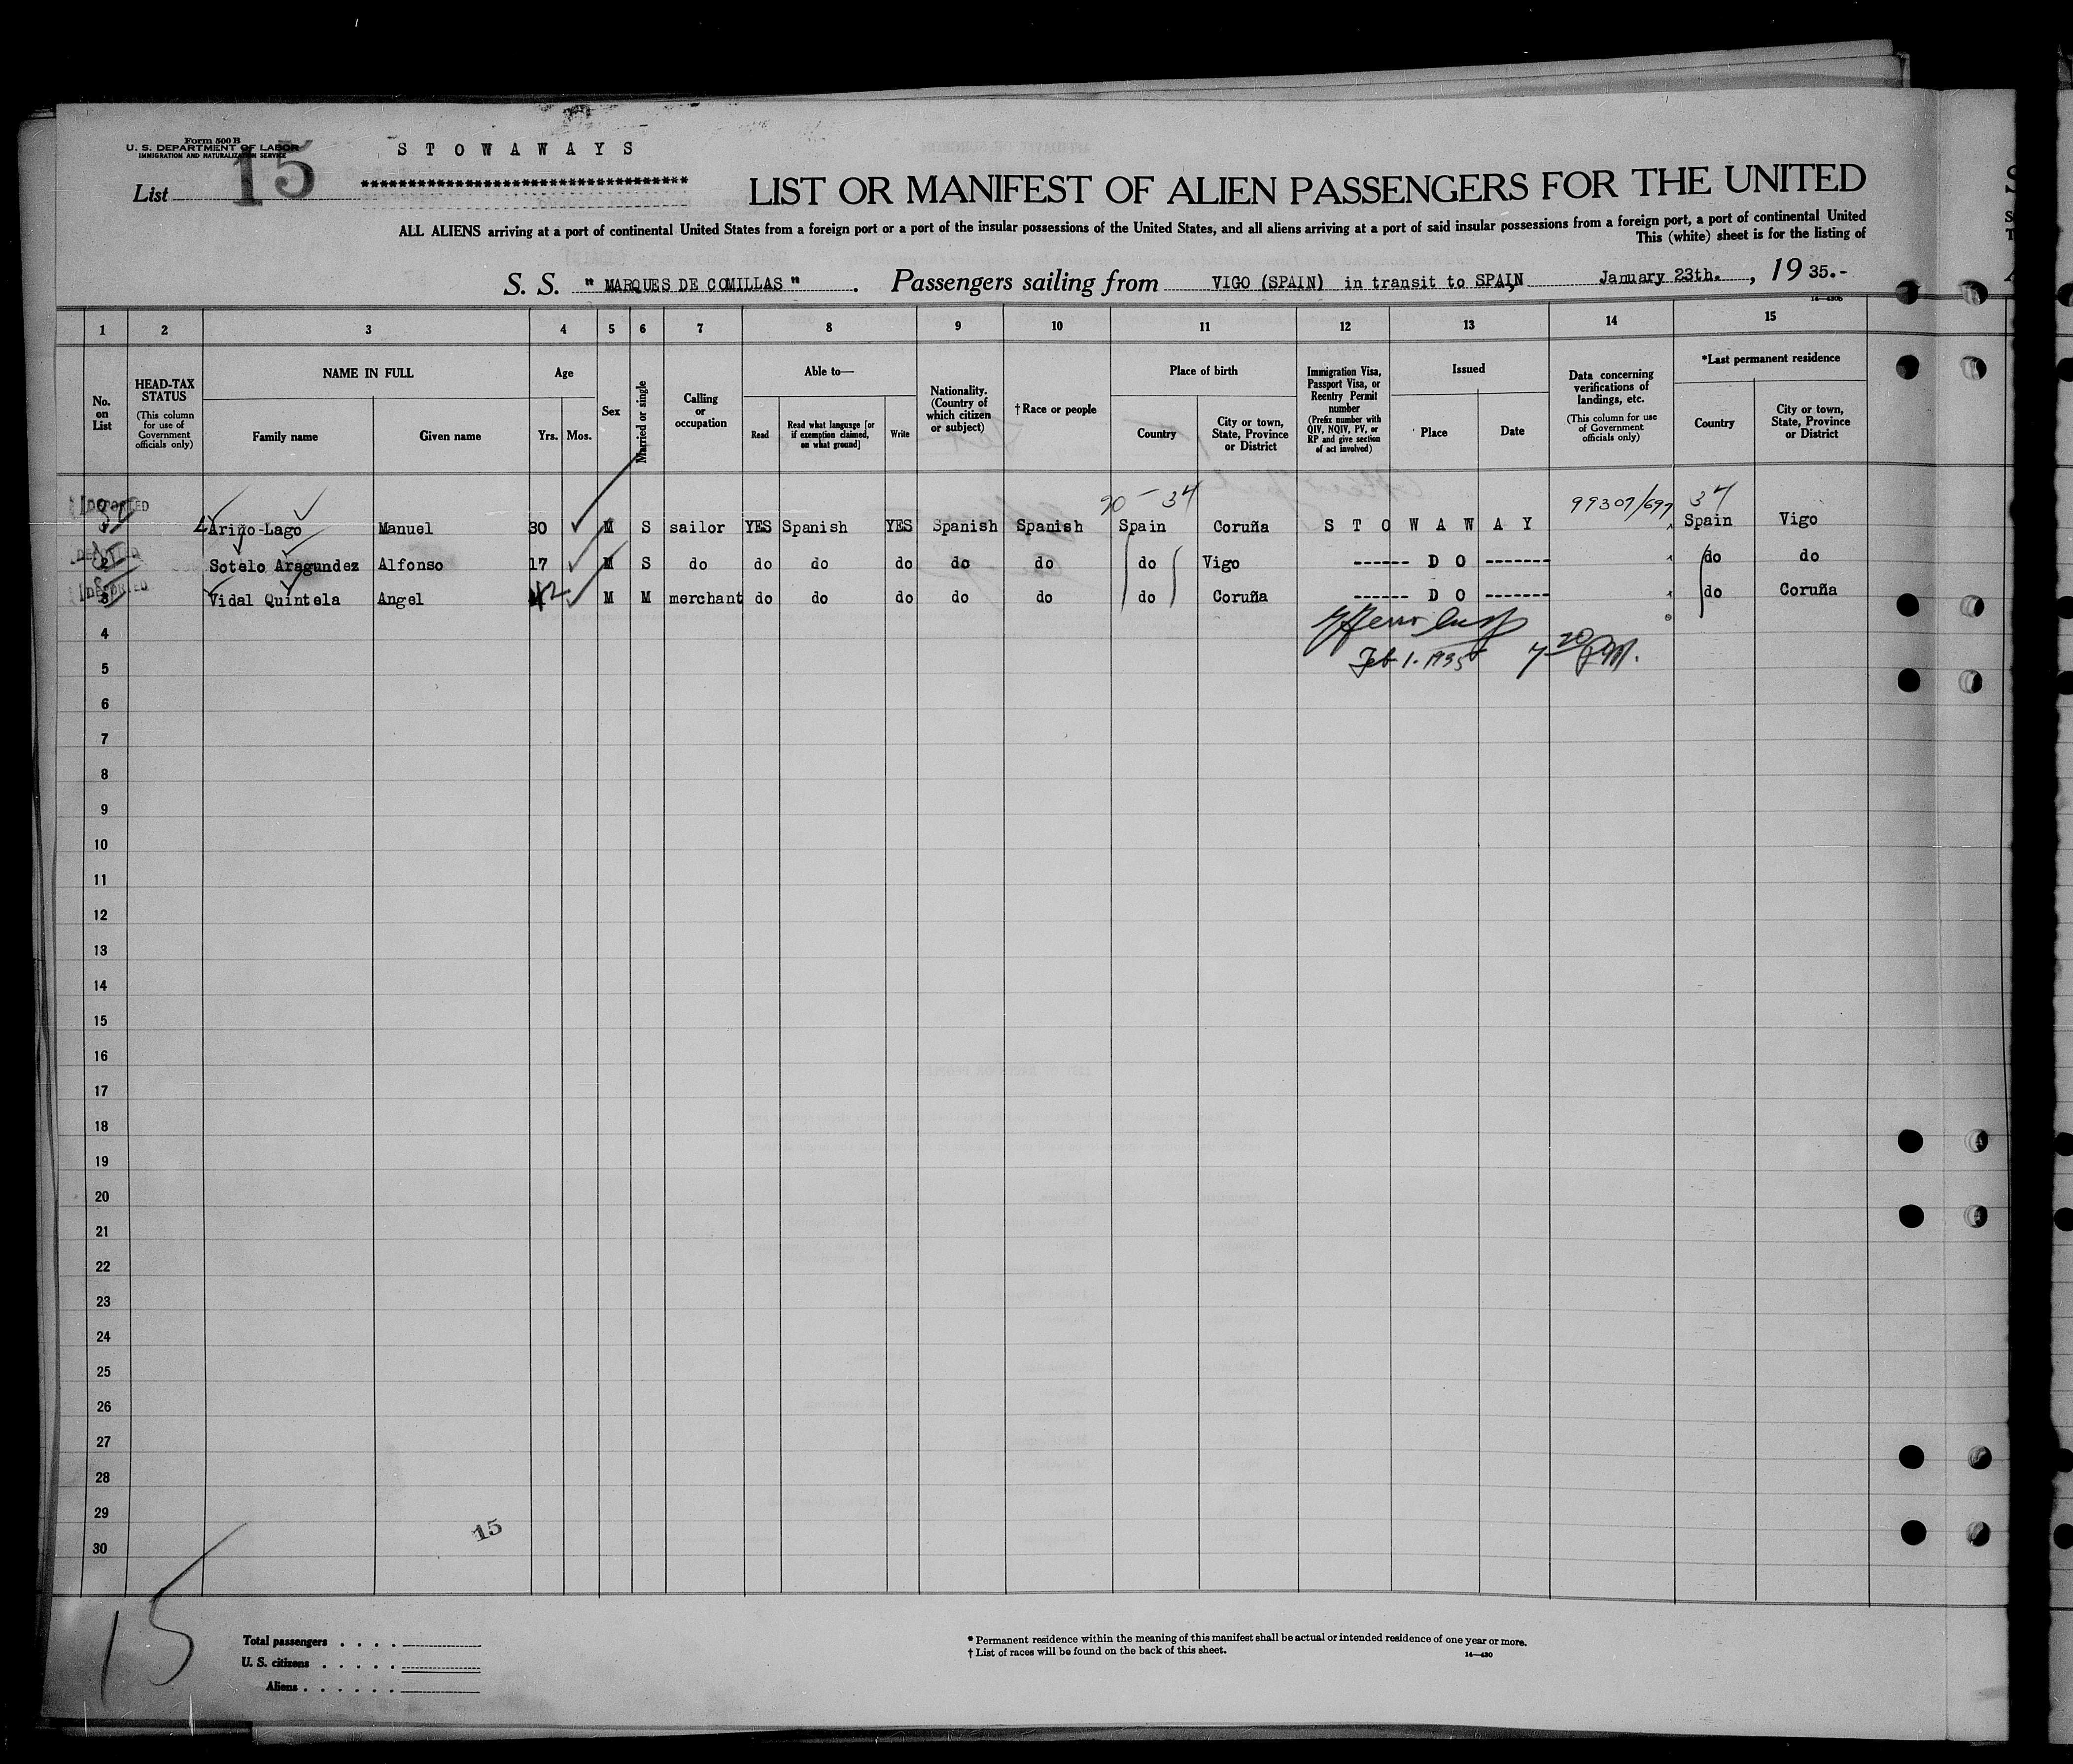 Form 500 B
U. S. DEPARTMENT OF LABOR
IMMIGRATION AND NATURALIZATION SERVICE
STOWAWAYS
List 15
**********************************
LIST OR MANIFEST OF ALIEN PASSENGERS FOR THE UNITED
ALL ALIENS arriving at a port of continental United States from a foreign port or a port of the insular possessions of the United States, and all aliens arriving at a port of said insular possessions from a foreign port, a port of continental United
This (white) sheet is for the listing of
S. S. "MARQUES DE COMILLAS". Passengers sailing from VIGO (SPAIN) in transit to SPAIN, January 23th., 1935.-
14—430b
1 2 3 4 5 6 7 8 9 10 11 12 13 14 15
No. on List
HEAD-TAX STATUS (This column for use of Government officials only)
NAME IN FULL
Family name Given name
Age
Yrs. Mos.
Sex
Married or single
Calling or occupation
Able to—
Read
Read what language [or if exemption claimed, on what ground]
Write
Nationality. (Country of which citizen or subject)
†Race or people
Place of birth
Country
City or town, State, Province or District
Immigration Visa, Passport Visa, or Reentry Permit number (Prefix number with QIV, NQIV, PV, or RP and give section of act involved)
Issued
Place Date
Data concerning verifications of landings, etc. (This column for use of Government officials only)
*Last permanent residence
Country
City or town, State, Province or District
90 - 34 99307/697 34
Ariño-Lago Manuel 30 M S sailor YES Spanish YES Spanish Spanish Spain Coruña STOWAWAY Spain Vigo
Sotelo Aragundez Alfonso 17 M S do do do do do do do Vigo ------ D O ------- do do
3 Vidal Quintela Angel 42 M M merchant do do do do do do Coruña ------ D O ------- do Coruña
4
5 Feb 1. 1935 7 20 PM.
6
7
8
9
10
11
12
13
14
15
16
17
18
19
20
21
22
23
24
25
26
27
28
29
15
30
15
Total passengers . . . .
U. S. citizens . . . . .
Aliens . . . . . .
* Permanent residence within the meaning of this manifest shall be actual or intended residence of one year or more.
† List of races will be found on the back of this sheet.
14—430